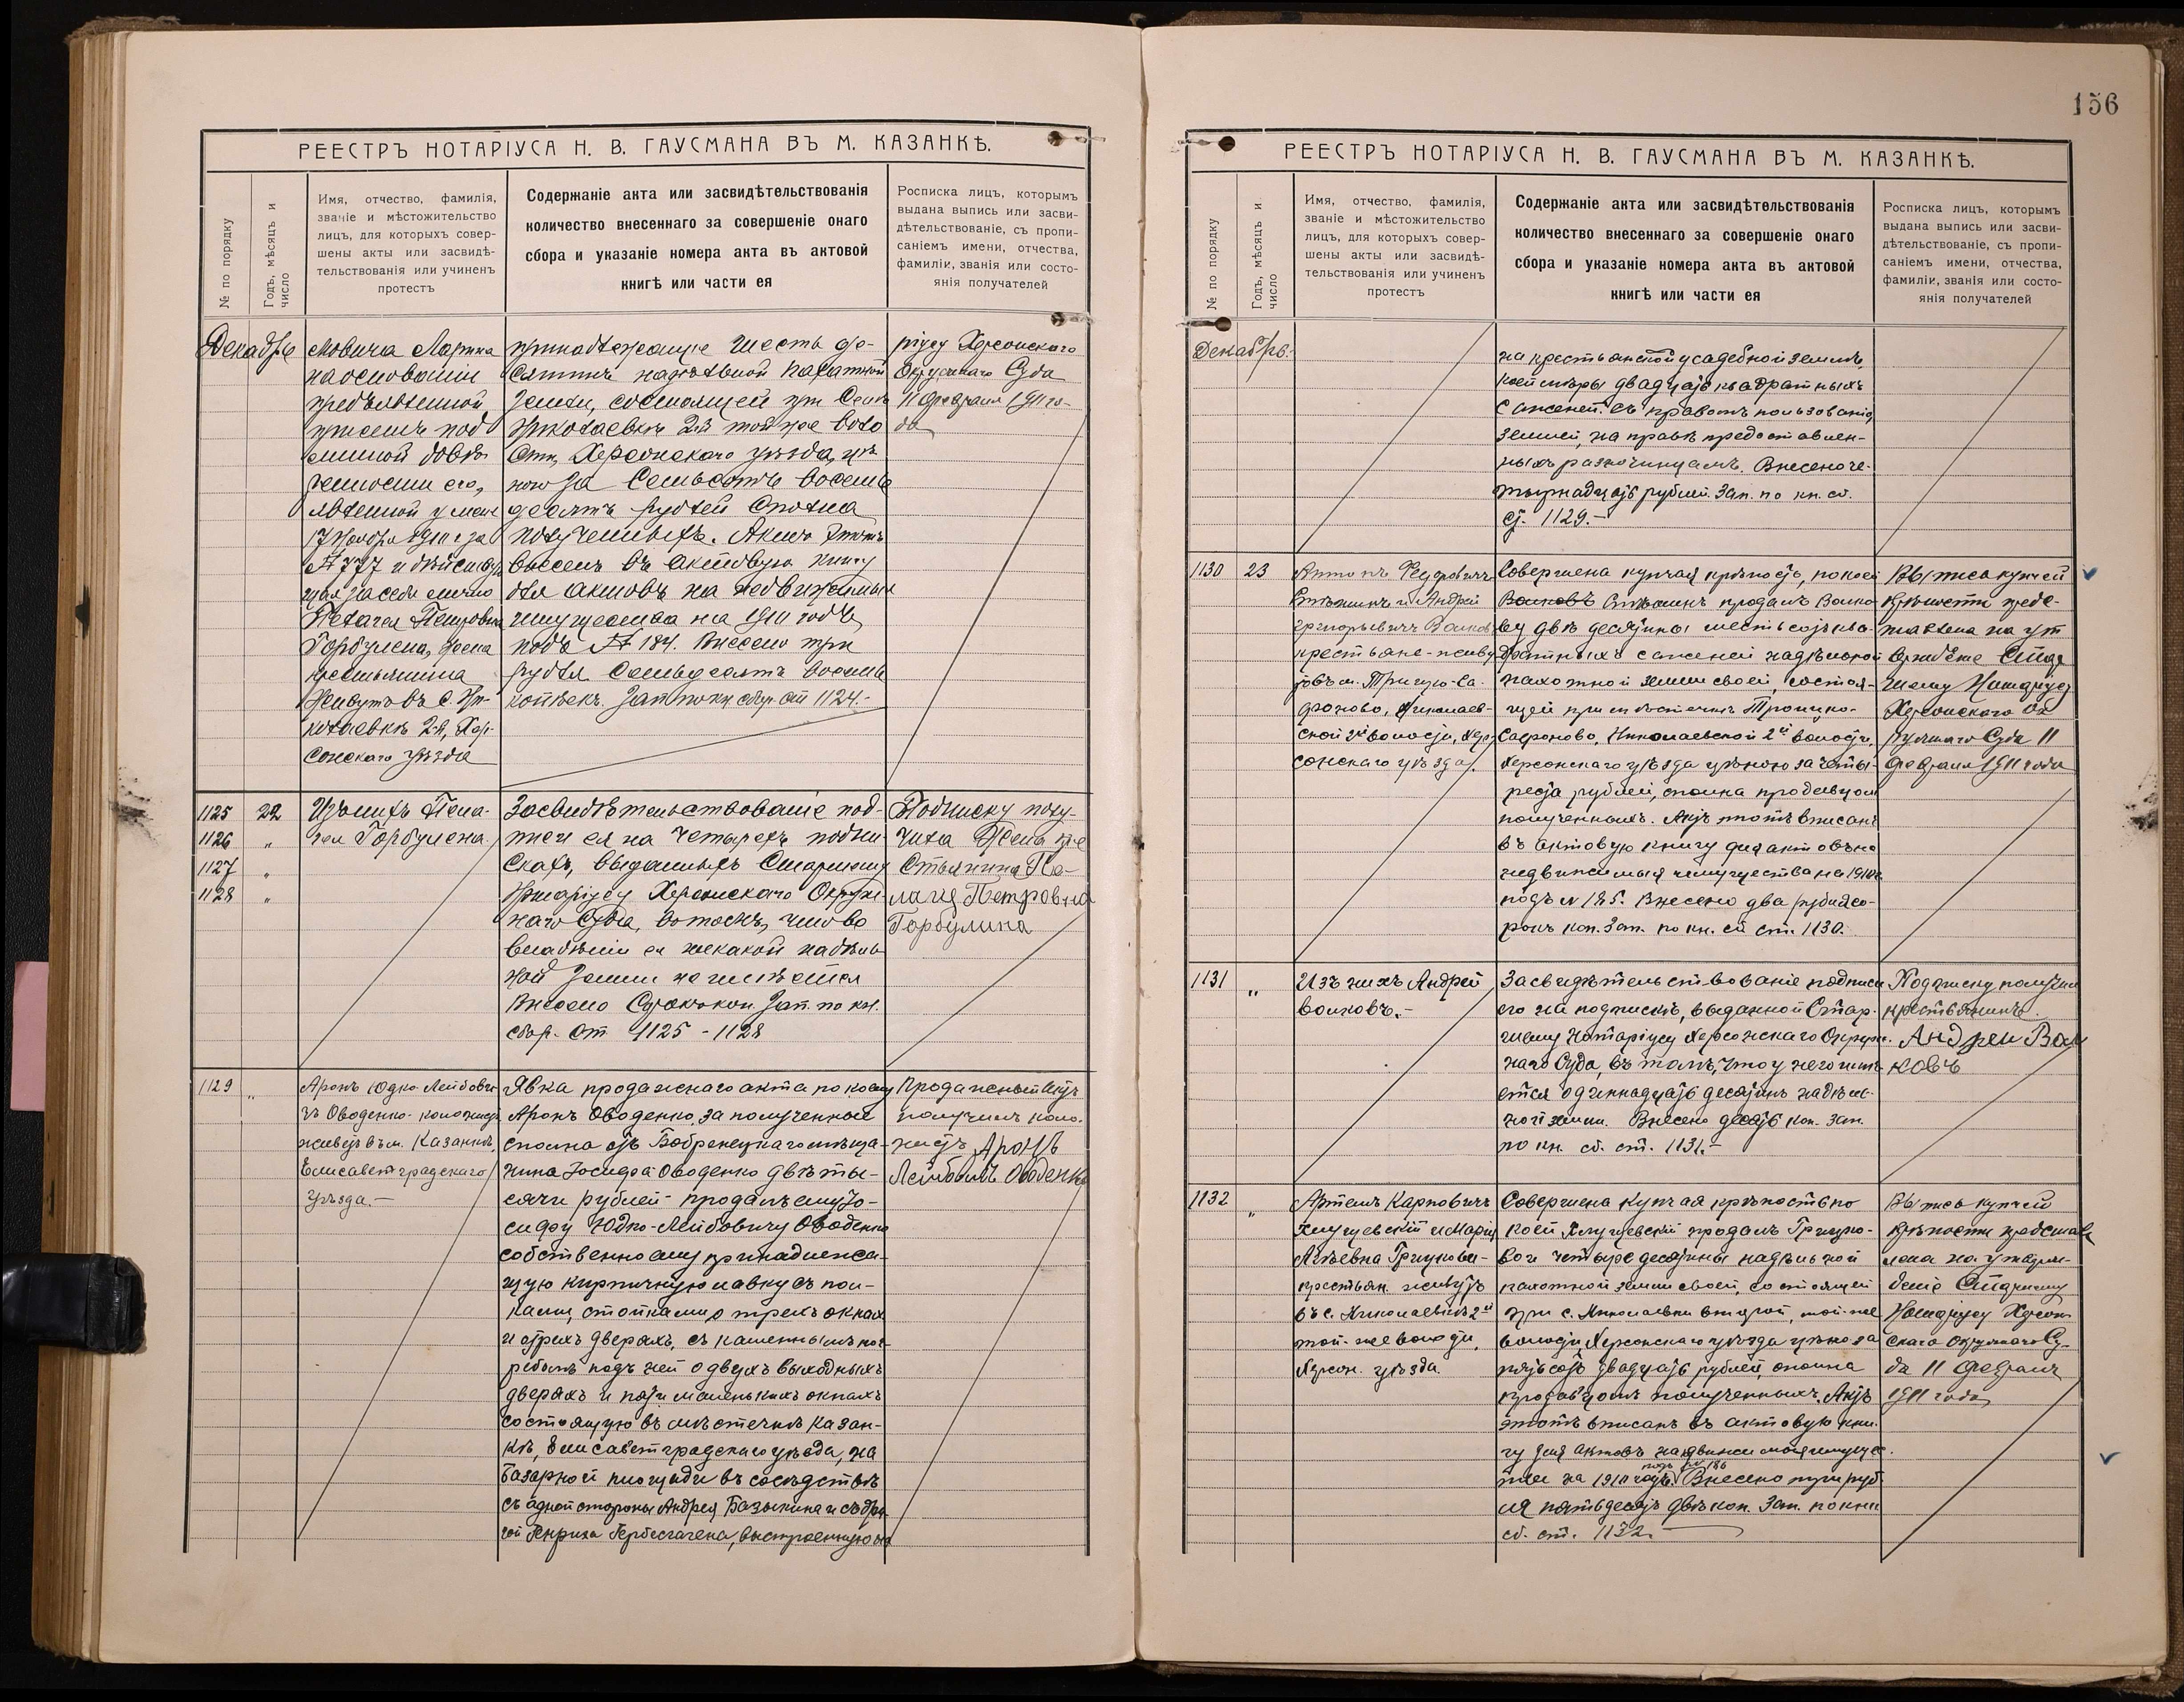 РЕЕСТРЪ НОТАРІУСА Н. В. ГАУСМАНА ВЪ М. КАЗАНКѢ.
№ по порядку
Годъ, мѣсяцъ и
число
Имя, отчество, фамилія,
званіе и мѣстожительство
лицъ, для которыхъ совер-
шены акты или засвидѣ-
тельствованія или учиненъ
протестъ
Содержаніе акта или засвидѣтельствованія
количество внесеннаго за совершеніе онаго
сбора и указаніе номера акта въ актовой
книгѣ или части ея
Росписка лицъ, которымъ
выдана выпись или засви-
дѣтельствованіе, съ пропи-
саніемъ имени, отчества,
фамиліи, званія или состо-
янія получателей
Декабрь
мовича Ларина
на основаніи
предъявленной
при семъ под
линной довѣ
ренности его,
явленной у меня
17 Ноября 1910 г за
№ 977 и дѣйству
щая за себя лично
Пелагея Петровна
Горбулина, жена
крестьянина
Живутъ въ с. Ни-
колаевкѣ 2й, Хер-
сонскаго уѣзда
принадлежащіе шесть де-
сятинъ надѣльной пахатной
земли, состоящей при селѣ
Николаевкѣ 2й той же воло
сти, Херсонскаго уѣзда, цѣ
ною за семьсотъ восемь
десятъ рублей сполна
полученныхъ. Актъ этотъ
внесенъ въ актовую книгу
для актовъ на недвижимыя
имущества на 1910 годъ
подъ № 184. Внесено три
рубля семьдесятъ восемь
копѣекъ. Зап по кн сбор. ст 1124.-
ріусу Херсонскаго
Окружнаго Суда
11 Февраля 1911 го-
да
1125 22
1126 "
1127 "
1128 "
Изъ нихъ Пела-
гея Горбулина.
Засвидѣтельствованіе под-
писи ея на четырехъ подпи
скахъ, выданныхъ Старшему
Нотаріусу Херсонскаго Окруж-
наго Суда, въ томъ, что во
владѣніи ея никакой надѣль
ной земли не имѣется
Внесено Сорокъ коп. Зап. по кн.
сбор. ст 1125 - 1128
Подписку полу-
чила Жена кре
стьянина Пе-
лагея Петровна
Горбулина
1129 "
Аронъ Юдко-Лейбови
чъ Ободенко-колонистъ
живетъ въ м. Казанкѣ,
Елисаветградскаго
уѣзда.-
Явка продажнаго акта по коему
Аронъ Ободенко, за полученные
сполна отъ Бобринецкаго мѣща-
нина Іосифа Ободенко двѣ ты-
сячи рублей - продалъ ему Іо-
сифу Юдко-Лейбовичу Ободенко
собственно ему принадлежа-
щую кирпичную лавку съ пол-
ками, стойками, о трехъ окнахъ
и трехъ дверяхъ, съ каменнымъ пог-
ребомъ подъ ней о двухъ выходныхъ
дверяхъ и пяти маленькихъ окнахъ
состоящую въ мѣстечкѣ Казан-
кѣ, Елисаветградскаго уѣзда, на
базарной площади въ сосѣдствѣ
съ одной стороны Андрея Базыкина и съ дру-
гой Генриха Гербесгагена, выстроенную на
Продажный актъ
получилъ коло-
нистъ Аронъ
Лейбовичъ Ободенко
156
РЕЕСТРЪ НОТАРІУСА Н. В. ГАУСМАНА ВЪ М. КАЗАНКѢ.
№ по порядку
Годъ, мѣсяцъ и
число
Имя, отчество, фамилія,
званіе и мѣстожительство
лицъ, для которыхъ совер-
шены акты или засвидѣ-
тельствованія или учиненъ
протестъ
Содержаніе акта или засвидѣтельствованія
количество внесеннаго за совершеніе онаго
сбора и указаніе номера акта въ актовой
книгѣ или части ея
Росписка лицъ, которымъ
выдана выпись или засви-
дѣтельствованіе, съ пропи-
саніемъ имени, отчества,
фамиліи, званія или состо-
янія получателей
Декабрь.-
на крестьянской усадебной землѣ,
коей мѣры двадцать квадратныхъ
саженей. съ правомъ пользованія
землей, на правѣ предоставлен-
ныхъ разночинцамъ. Внесено че-
тырнадцать рублей. Зап. по кн. сб.
ст. 1129.-
1130 23
Антонъ Федоровичъ
и Андрей
Григорьевичъ Волковъ
крестьяне-живу
тъ въ м. Троицко-Са-
фоново, Николаев-
ской 2й волости, Хер-
сонскаго уѣзда.
Совершена купчая крѣпость, по коей
Волковъ продалъ Волко
ву двѣ десятины шестьсотъ ква-
дратныхъ саженей надѣльной
пахотной земли своей, состоя-
щей при мѣстечкѣ Троицко-
Сафоново, Николаевской 2й волости,
Херсонскаго уѣзда цѣною за четы-
реста рублей, сполна продавцомъ
полученныхъ. Актъ этотъ вписанъ
въ актовую книгу для актовъ на
недвижимыя имущества на 1910 г.
подъ № 185. Внесено два рубля со-
рокъ коп. Зап. по кн. сб. ст. 1130.-
Выпись купчей
крѣпости предс-
тавлена на ут
вержденіе Стар
шему Нотаріусу
Херсонскаго Ок
ружнаго Суда 11
Февраля 1911 года
1131 "
Изъ нихъ Андрей
Волковъ.-
Засвидѣтельствованіе подписи
его на подпискѣ, выданной Стар-
шему Нотаріусу Херсонскаго Окруж-
наго Суда, въ томъ, что у него имѣ-
ется одиннадцать десятинъ надѣль-
ной земли. Внесено десять коп. Зап.
по кн. сб. ст. 1131.-
Подписку получилъ
крестьянинъ.
Андреи Вол
ковъ
1132 "
Артемъ Карповичъ
и Марія
Грицкова-
крестьян. живутъ
въ с. Николаевкѣ 2й
той-же волости,
Херсон. уѣзда.
Совершена купчая крѣпость по
коей продалъ Грицко-
вой четыре десятины надѣльной
пахотной земли своей, состоящей
при с. Николаевки второй, той-же
волости Херсонскаго уѣзда цѣною за
пятьсотъ двадцать рублей, сполна
продавцомъ полученныхъ. Актъ
этотъ вписанъ въ актовую кни-
гу для актовъ на недвижимыя имущес-
подъ № 186
тва на 1910 годъ. Внесено три руб
ля пятьдесятъ двѣ коп. Зап. по кни
сб. ст. 1132.
Выпись купчей
крѣпости представ
лена на утверж-
деніе Старшему
Нотаріусу Херсон
скаго Окружнаго Су-
да 11 Февраля
1911 года